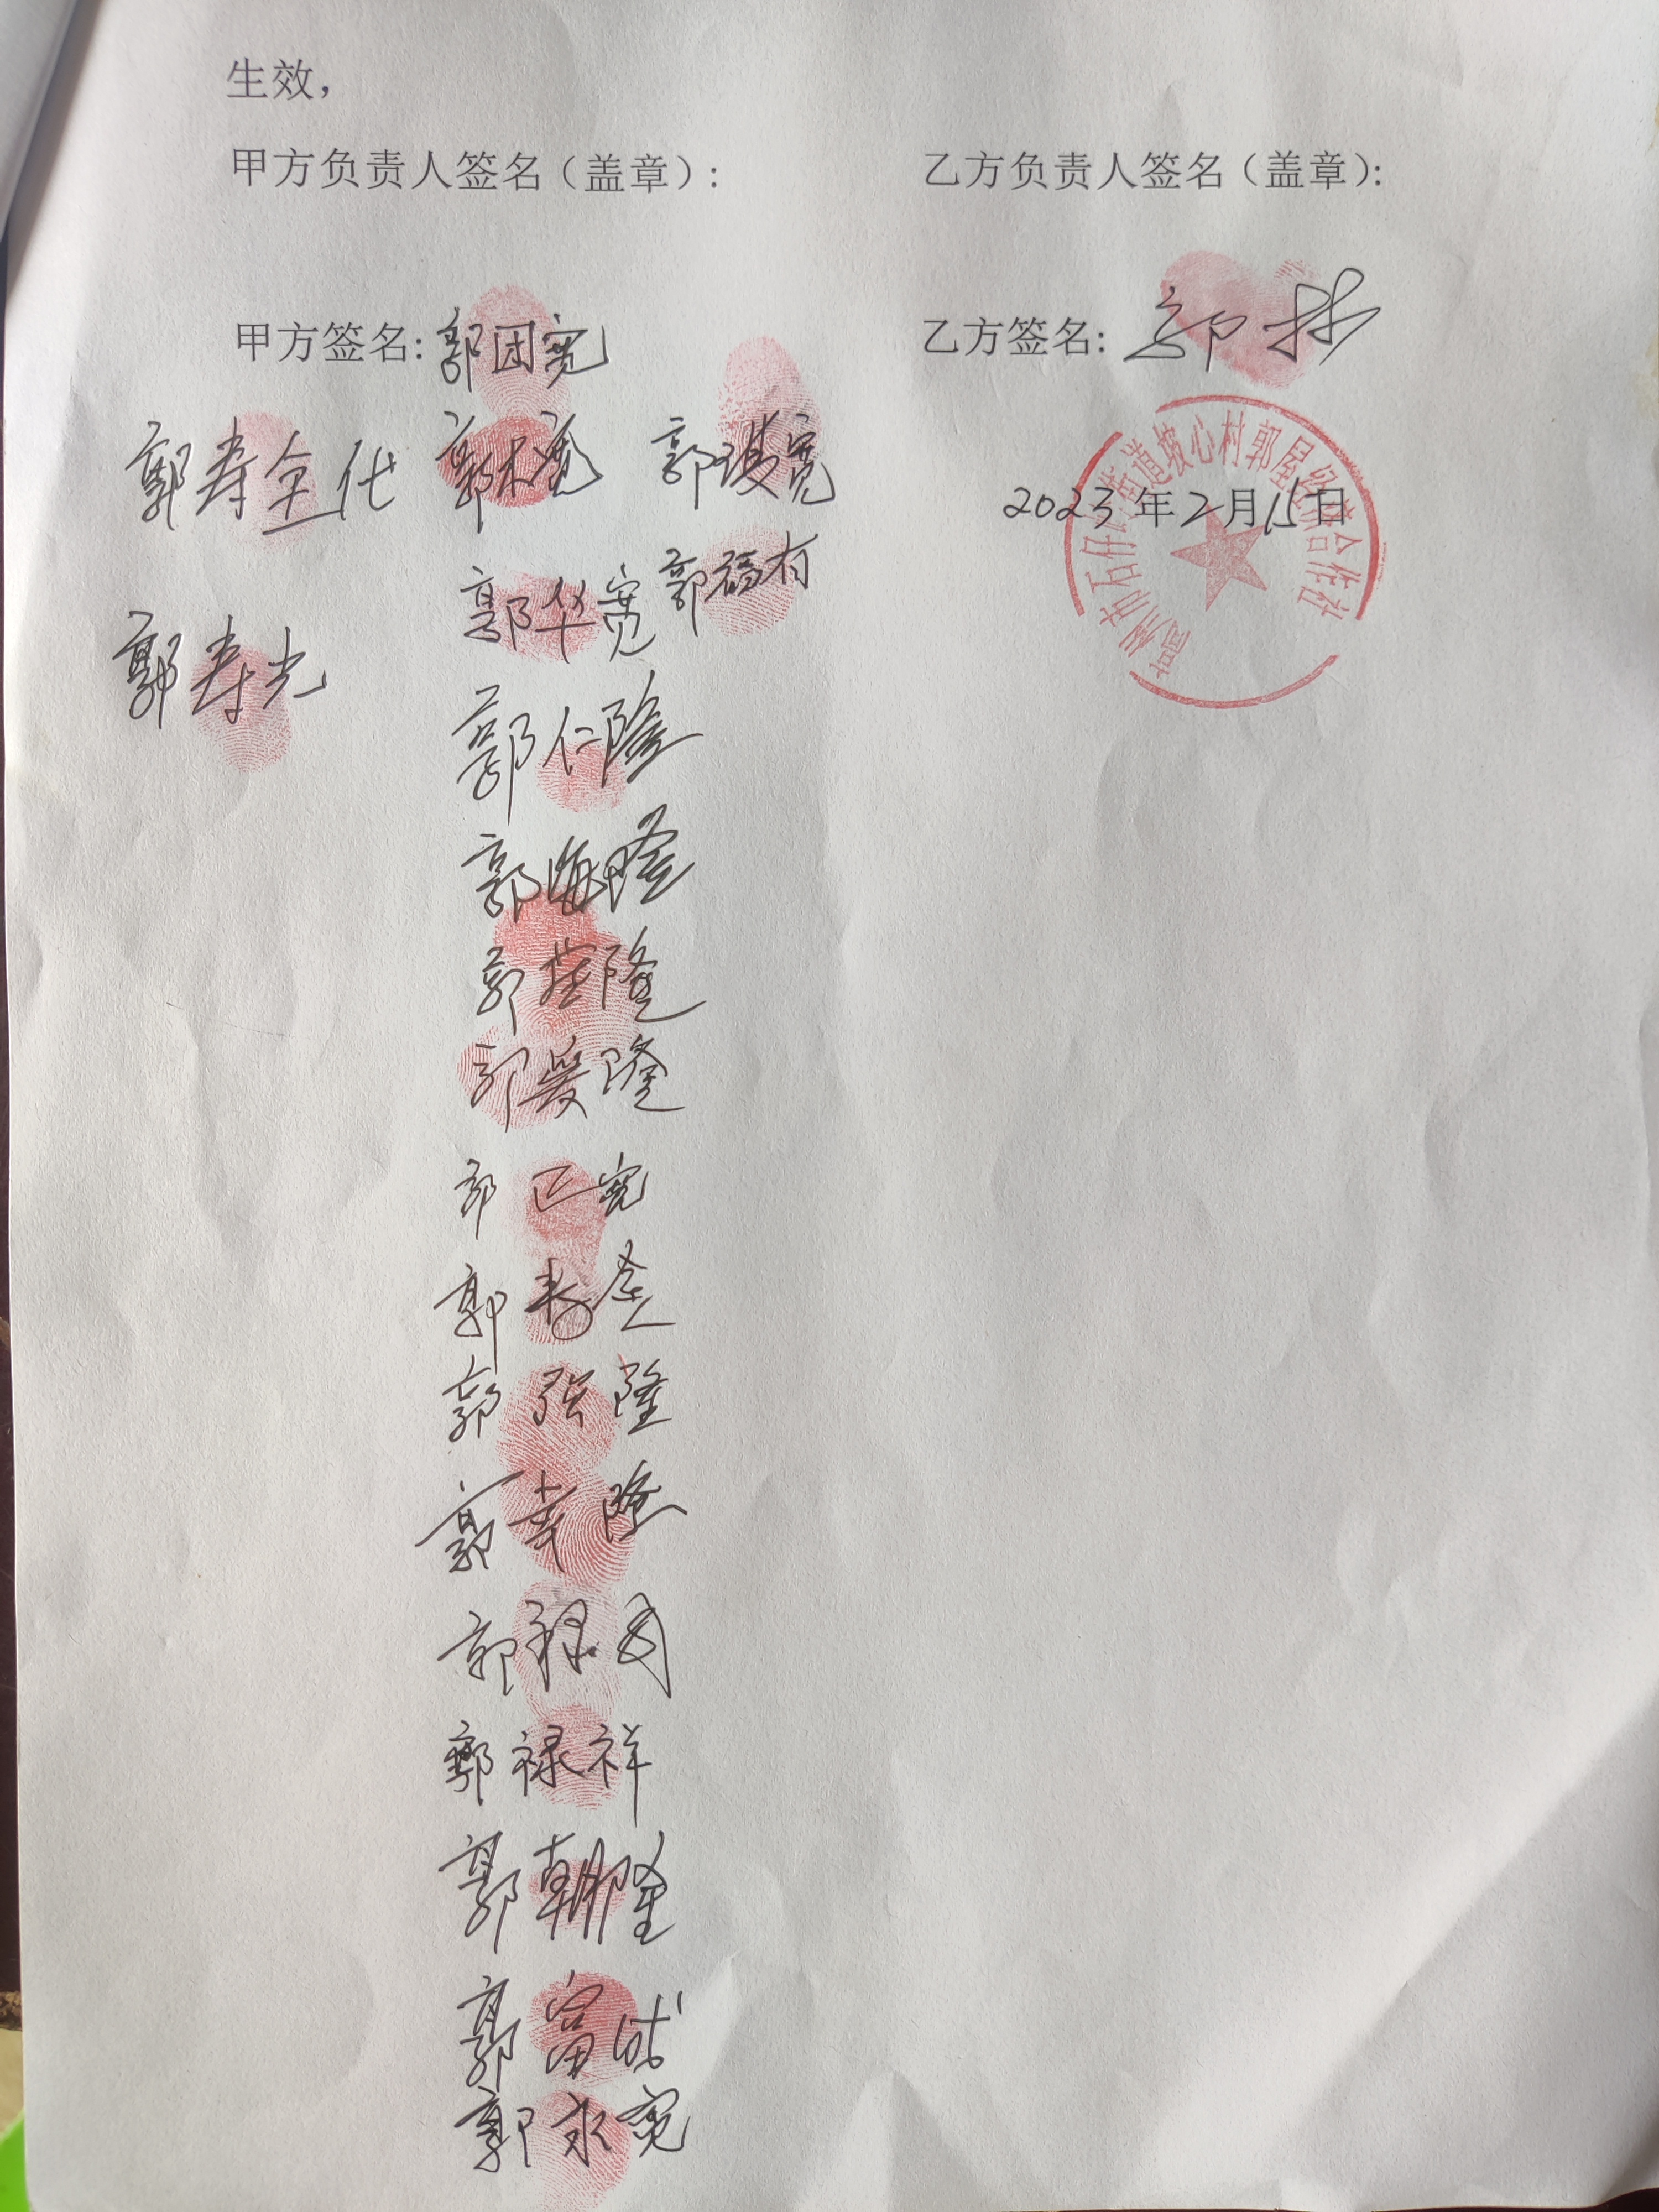 生效，
甲方负责人签名（盖章）: 乙方负责人签名（盖章）:
甲方签名: 郭困宽 乙方签名: 郭
郭寿全代 郭木宽 郭琪宽
2023年2月15日
高州市石仔岭街道坡心村郭屋经济合作社
郭华宽 郭福有
郭寿光
郭仁隆
郭海隆
郭 隆
郭爱隆
郭 宽
郭寿全
郭强隆
郭幸隆
郭禄
郭禄祥
郭朝隆
郭富成
郭永宽